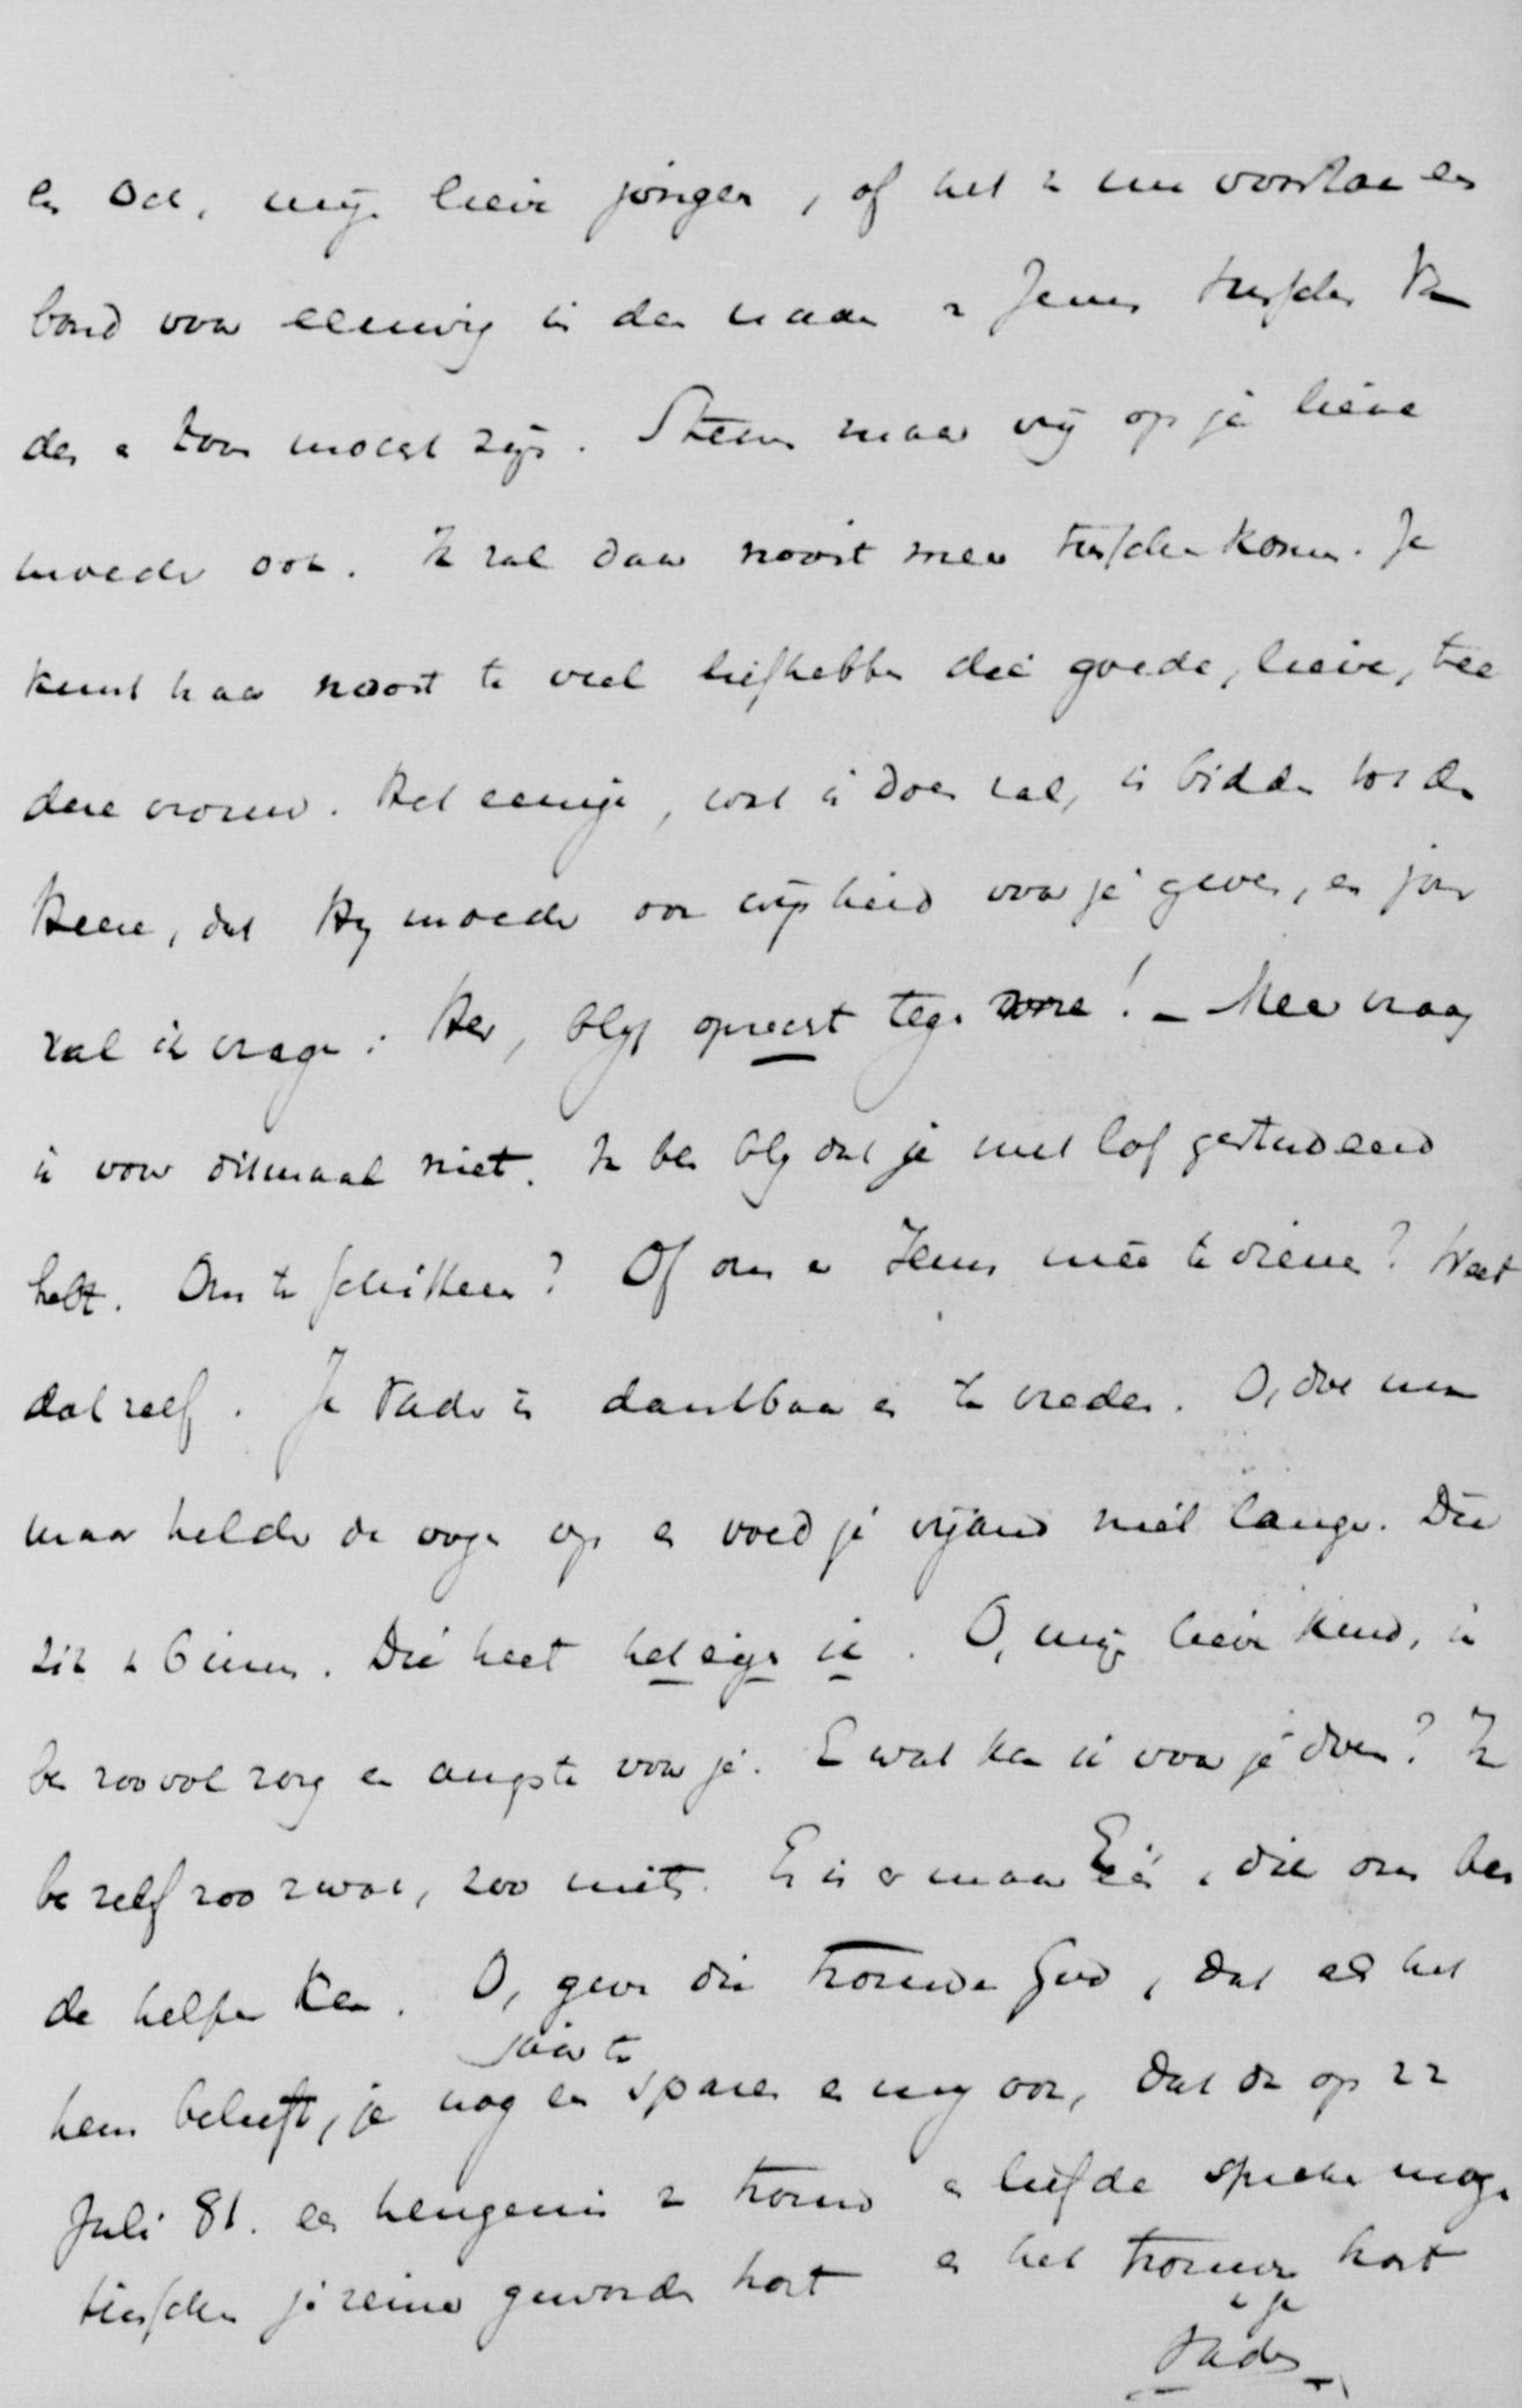 en Och, mijn lieve jongen, of het nu voortaan een
band voor eeuwig in den naam v Jezus tusschen
den zoon mocht zijn. Steun maar vrij op je lieve
moeder ook. Ik zal daar nooit meer tusschen komen. Je
kunt haar nooit te veel liefhebben die goede, lieve, tee
dere vrouw. Het eenige, wat ik doen zal, is bidden tot den
Heere, dat Hij moeder ook wijsheid voor je geve, en jou
zal ik vragen: Her, blijf oprecht tegen vrouw! – Meer vraag
ik voor ditmaal niet. Ik ben blij dat je met lof gestudeerd
hebt. Om te schitteren? Of om er Jezus mee te dienen? Weet
dat zelf. Je Vader is dankbaar en te vreden. O, doe nu
maar helder de oogen op en voed je vijand niet langer. Die
zit v binnen. Die heet het eigen ik. O, mijn lieve kind, ik
ben zoo vol zorg en angsten voor je. En wat kan ik voor je doen? Ik
ben zelf zoo zwak, zoo niets. Er is er maar Eén, die ons bei
de helpen kan. O, geve die trouwe God, dat als het
hem belieft, je nog een jaar te sparen en mij ook, dat dan op 22
Juli 81. een heugenis v trouw en liefde spreken moge
tusschen je reine geworden hart en het trouwe hart
v je
Vader